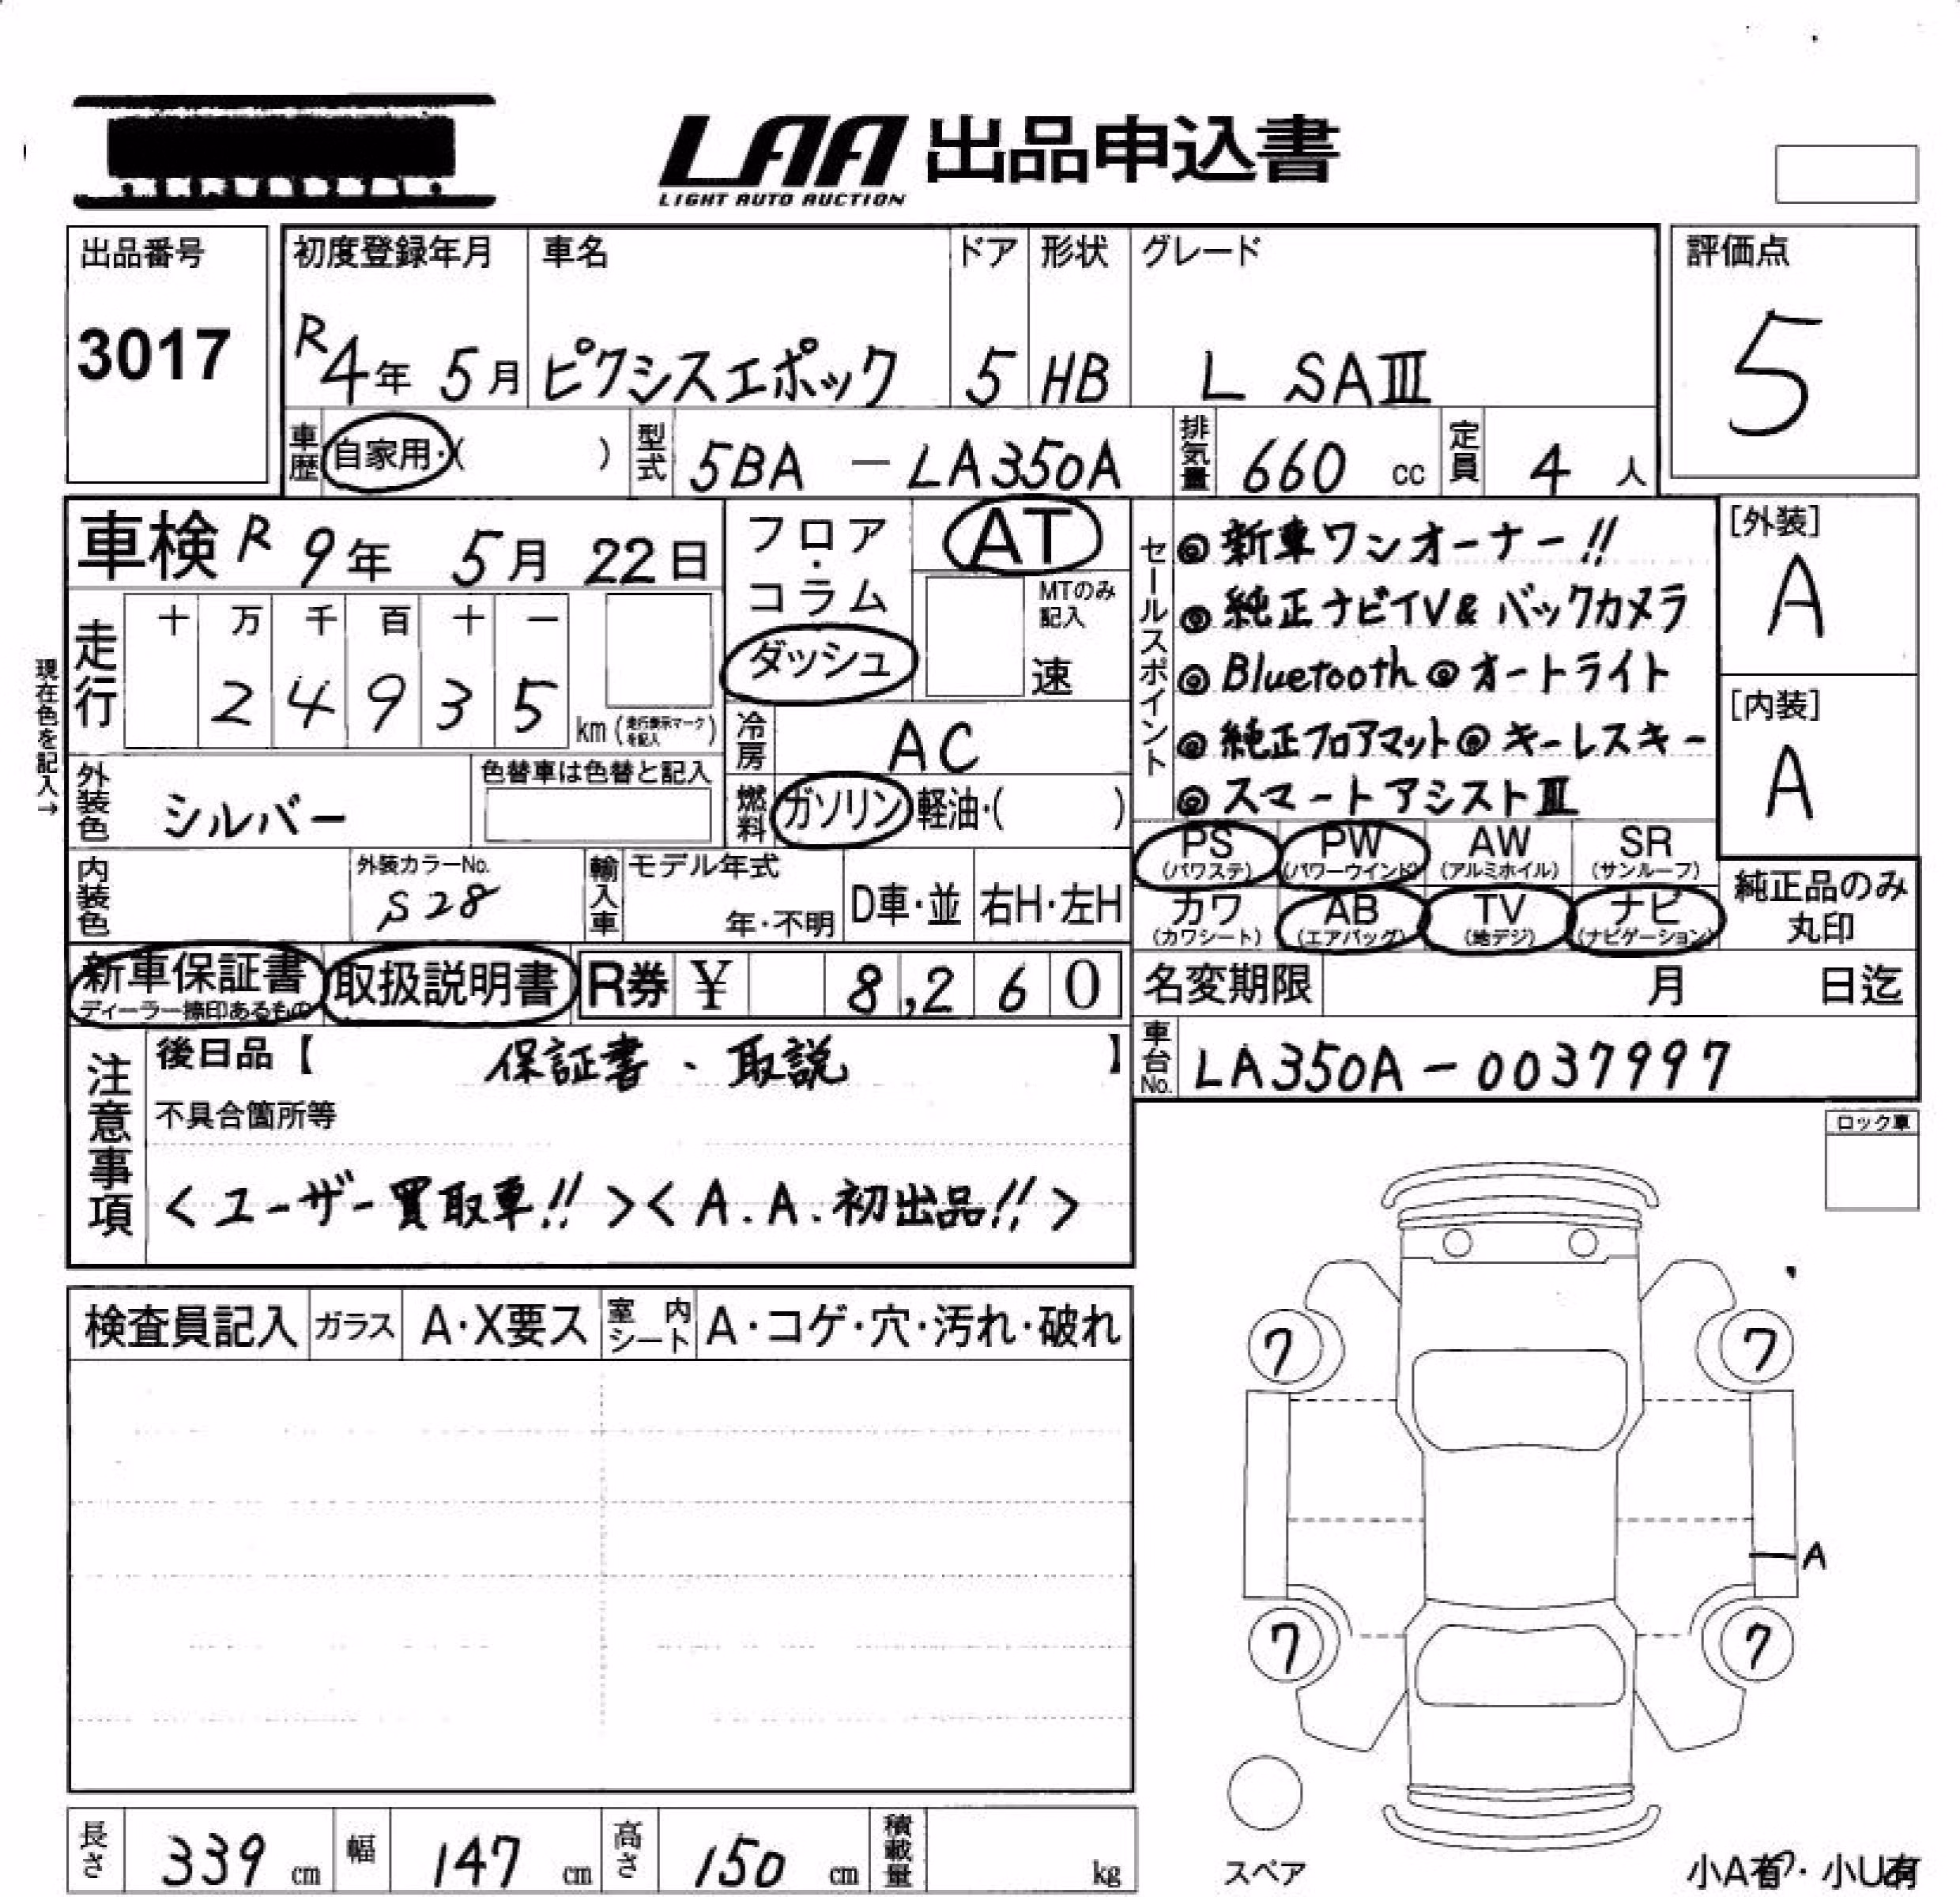 LAA 出品申込書
LIGHT AUTO AUCTION
出品番号
3017
初度登録年月
R4年 5月
車名
ピクシスエポック
ドア
5
形状
HB
グレード
L SAⅢ
評価点
5
車歴
自家用・( )
型式
5BA - LA350A
排気量
660 cc
定員
4 人
車検 R 9年 5月 22日
現在色を記入→
走行
十 万 千 百 十 一
2 4 9 3 5
km (走行表示マークを記入)
フロア・コラム
ダッシュ
AT
MTのみ記入
速
冷房
AC
燃料
ガソリン 軽油・( )
外装色
シルバー
色替車は色替と記入
内装色
外装カラーNo.
S28
輸入車
モデル年式
年・不明
D車・並
右H・左H
セールスポイント
◎新車ワンオーナー!!
◎純正ナビTV& バックカメラ
◎Bluetooth◎オートライト
◎純正フロアマット◎キーレスキー
◎スマートアシストⅢ
[外装]
A
[内装]
A
PS (パワステ)
PW (パワーウインド)
AW (アルミホイル)
SR (サンルーフ)
カワ (カワシート)
AB (エアバッグ)
TV (地デジ)
ナビ (ナビゲーション)
純正品のみ
丸印
新車保証書
ディーラー捺印あるもの
取扱説明書
R券 ¥ 8,260
名変期限 月 日迄
車台No.
LA350A-0037997
注意事項
後日品【 保証書 、 取説 】
不具合箇所等
<ユーザー買取車!!><A.A.初出品!!>
ロック車
検査員記入
ガラス
A・X要ス
室内シート
A・コゲ・穴・汚れ・破れ
7
7
A
7
7
スペア
長さ
339 cm
幅
147 cm
高さ
150 cm
積載量
kg
小A有・小U有